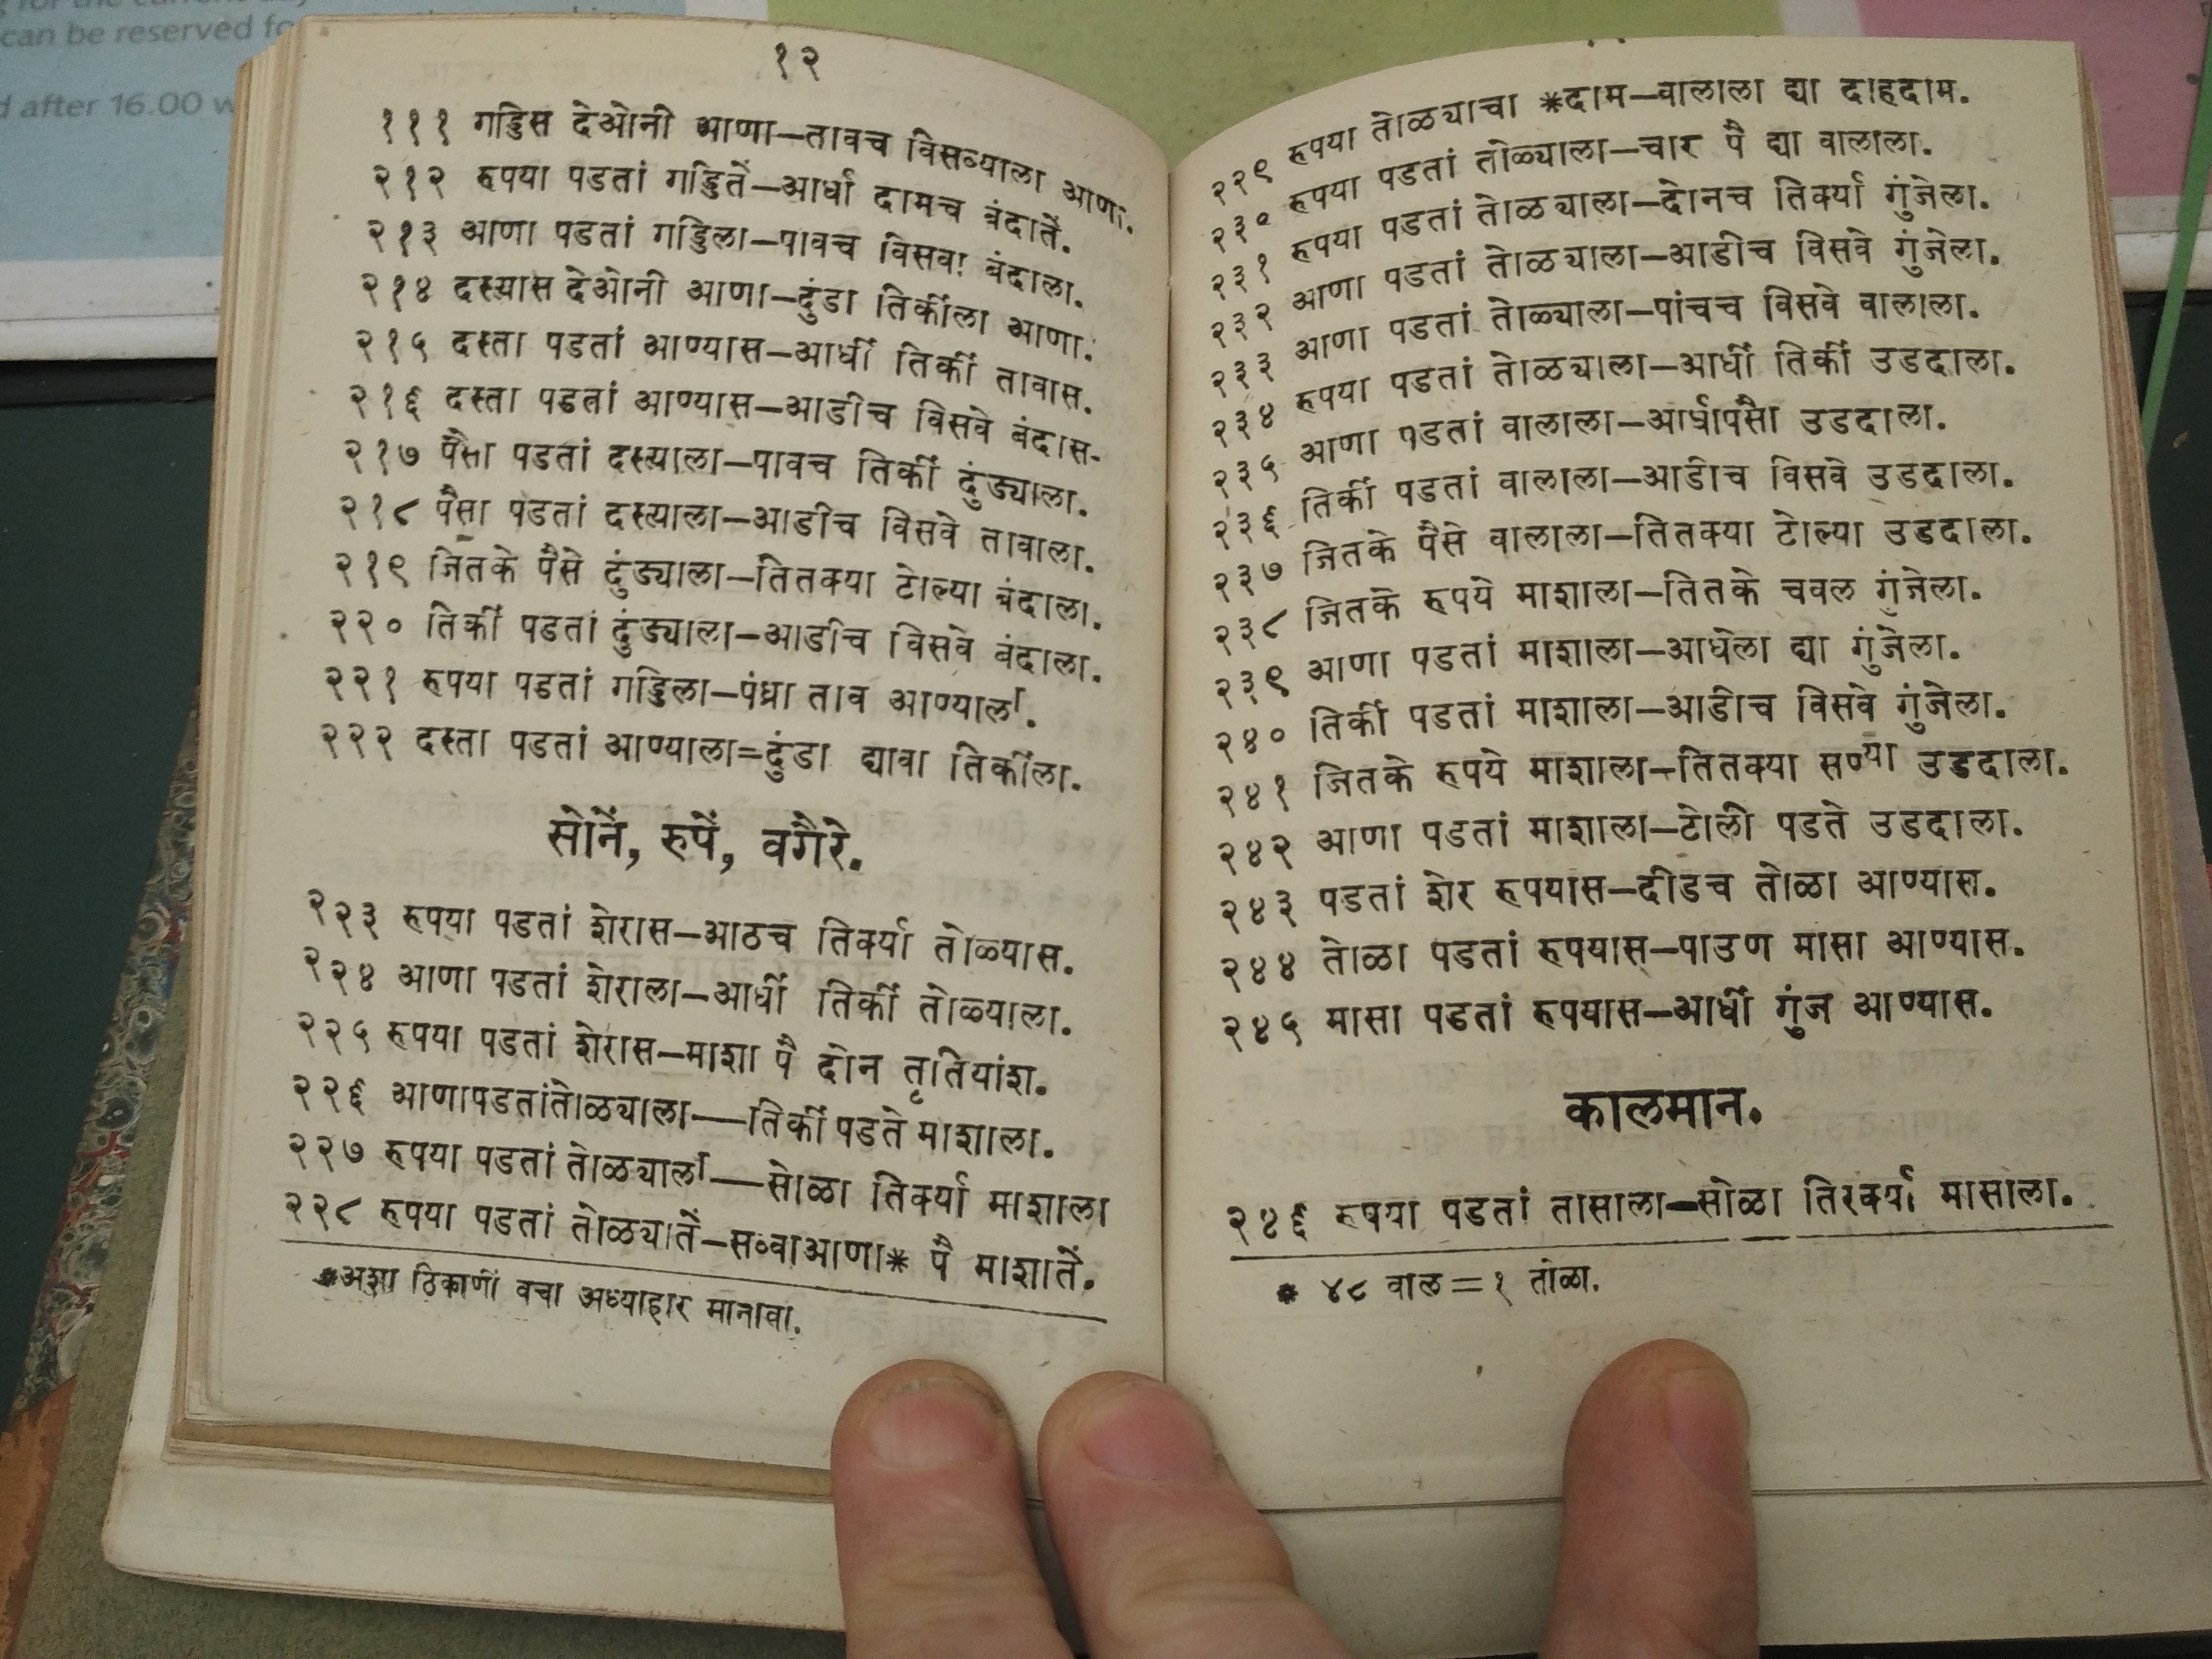 for the current day
can be reserved fo
d after 16.00 w
१२
१११ गड्डिस देओनी आणा—तावच विसव्याला आणा.
२१२ रुपया पडतां गड्डितें—आर्धा दामच बंदातें.
२१३ आणा पडतां गड्डिला—पावच विसवा बंदाला.
२१४ दस्त्यास देओनी आणा—दुंडा तिर्कीला आणा.
२१५ दस्ता पडतां आण्यास—आर्धी तिर्की तावास.
२१६ दस्ता पडतां आण्यास—आडीच विसवे बंदास.
२१७ पैसा पडतां दस्त्याला—पावच तिर्की दुंड्याला.
२१८ पैसा पडतां दस्त्याला—आडीच विसवे तावाला.
२१९ जितके पैसे दुंड्याला—तितक्या टोल्या बंदाला.
२२० तिर्की पडतां दुंड्याला—आडीच विसवे बंदाला.
२२१ रुपया पडतां गड्डिला—पंध्रा ताव आण्याला.
२२२ दस्ता पडतां आण्याला=दुंडा द्यावा तिर्कीला.
सोनें, रुपें, वगैरे.
२२३ रुपया पडतां शेरास—आठच तिर्क्या तोळ्यास.
२२४ आणा पडतां शेराला—आर्धी तिर्की तोळ्याला.
२२५ रुपया पडतां शेरास—माशा पै दोन तृतियांश.
२२६ आणापडतांतोळ्याला—तिर्की पडते माशाला.
२२७ रुपया पडतां तोळ्याला—सोळा तिर्क्या माशाला
२२८ रुपया पडतां तोळ्यातें—सव्वाआणा* पै माशातें.
*अशा ठिकाणीं वचा अध्याहार मानावा.
२२९ रुपया तोळ्याचा *दाम—वालाला द्या दाहदाम.
२३० रुपया पडतां तोळ्याला—चार पै द्या वालाला.
२३१ रुपया पडतां तोळ्याला—दोनच तिर्क्या गुंजेला.
२३२ आणा पडतां तोळ्याला—आडीच विसवे गुंजेला.
२३३ आणा पडतां तोळ्याला—पांचच विसवे वालाला.
२३४ रुपया पडतां तोळ्याला—आर्धी तिर्की उडदाला.
२३५ आणा पडतां वालाला—आर्धापैसा उडदाला.
२३६ तिर्की पडतां वालाला—आडीच विसवे उडदाला.
२३७ जितके पैसे वालाला—तितक्या टोल्या उडदाला.
२३८ जितके रुपये माशाला—तितके चवल गुंजेला.
२३९ आणा पडतां माशाला—आधेला द्या गुंजेला.
२४० तिर्की पडतां माशाला—आडीच विसवे गुंजेला.
२४१ जितके रुपये माशाला—तितक्या सण्या उडदाला.
२४२ आणा पडतां माशाला—टोली पडते उडदाला.
२४३ पडतां शेर रुपयास—दीडच तोळा आण्यास.
२४४ तोळा पडतां रुपयास—पाउण मासा आण्यास.
२४५ मासा पडतां रुपयास—आर्धी गुंज आण्यास.
कालमान.
२४६ रुपया पडतां तासाला—सोळा तिरक्या मासाला.
* ४८ वाल = १ तोळा.